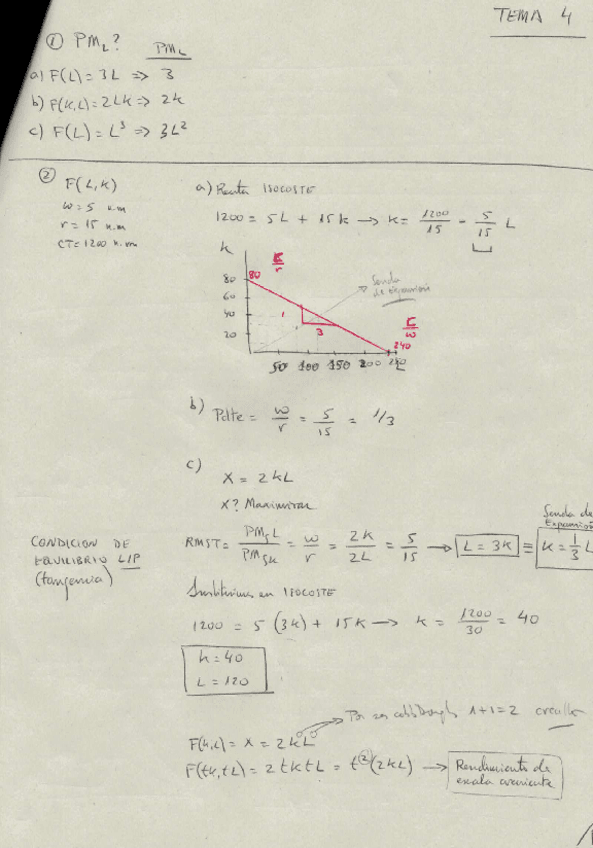 TEMA 4
① PM_L? PM_L
a) F(L) = 3L => 3
b) F(K,L) = 2LK => 2K
c) F(L) = L³ => 3L²
② F(L,K)
w = 5 u.m
r = 15 u.m
CT = 1200 u.m
a) Recta ISOCOSTE
1200 = 5L + 15K → K = 1200/15 - 5/15 L
K
80
60
40
20
80
1
3
240
Senda de expansión
50 100 150 200 250
L
b) Pdte = w/r = 5/15 = 1/3
c)
X = 2KL
X? Maximizar
CONDICION DE
EQUILIBRIO L/P
(tangencia)
RMST = PM_gL/PM_gK = w/r = 2K/2L = 5/15 → L = 3K ≡ K = 1/3 L
Senda de
Expansión
Sustituimos en ISOCOSTE
1200 = 5 (3K) + 15K → K = 1200/30 = 40
K = 40
L = 120
Por ser cobbDouglas 1+1=2
F(K,L) = X = 2KL
F(tK,tL) = 2tKtL = t²(2KL) → Rendimiento de
escala creciente